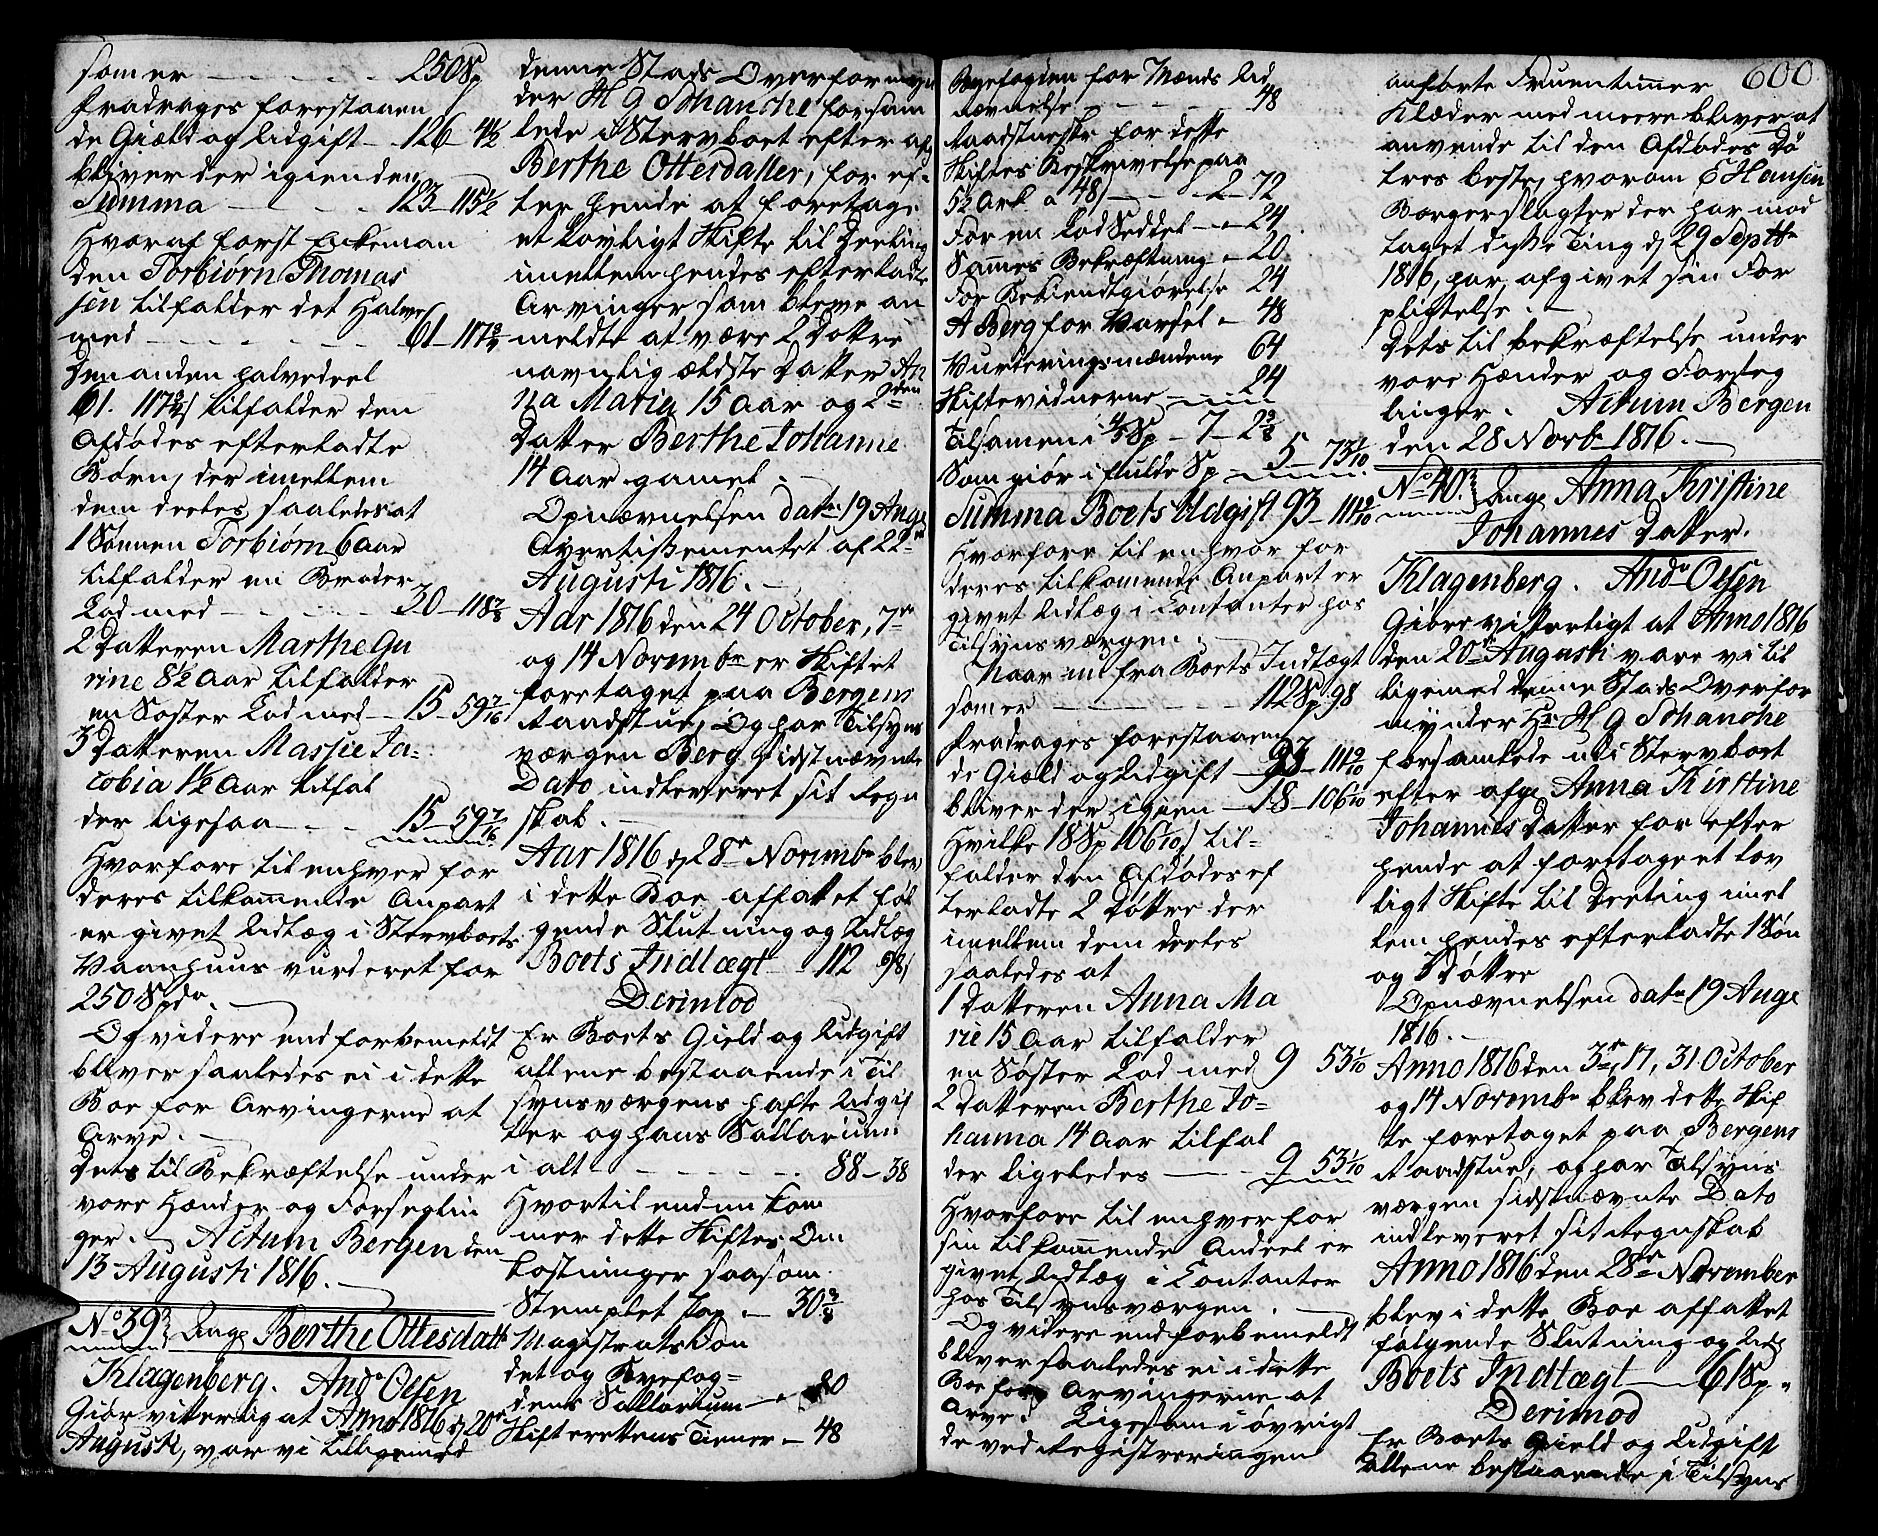 som er - - - - - - 250 Sp
fradrages forestaaen
de Giæld og Udgift - 126 - 4½
bliver der igien den
Summa - - - - 123 - 115½
Hvoraf først Enkeman
den Torbiørn Thomas
sen tilfalder det Halve
med - - - - - - 61 - 117¾
Den anden halvedeel
61. 117¾ s tilfalder den
Afdødes efterladte
Børn, der imellem
dem deeles saaledes at
1 Sønnen Torbiørn 6 Aar
tilfalder en Broder
Lod med - - - - - 30 - 118⅞
2 Datteren Marthe Gu
rine 8½ Aar tilfalder
en Søster Lod med - 15 - 59 7/16
3 Datteren Marsee Ja-
cobia 1½ Aar tilfal
der ligesaa - - - 15 - 59 7/16
Hvorfore til enhver for
deres tilkommende Anpart
er givet Udlæg i Stervboets
Vaanhuus vurderet for
250 Spdr.
Og videre end forbemeldt
bliver saaledes ei i dette
Boe for Arvingerne at
Arve.
Dets til Bekræftelse under
vore Hænder og Forseglin
ger. Actum Bergen den
13 Augusti 1816.
No 39 Ang. Berthe Ottesdatt
Klagenberg. Andr Olsen
Giør vitterlig at Anno 1816 d 20de
Augusti, var vi tilligemed
denne Stads Overformyn
der H G Schanche forsam
lede i Stervboet efter afg
Berthe Ottesdatter, for ef-
ter hende at foretage
et lovligt Skifte til Deeling
imellem hendes efterladte
Arvinger som bleve an
meldte at være 2 Døttre
navnlig ældste Datter An
na Maria 15 Aar og 2den
Datter Berthe Johanne
14 Aar gamel.
Opnævnelsen dat 19 Aug
Avertissementet af 22de
Augusti 1816.
Aar 1816 den 24 October, 7de
og 14 Novembr er Skiftet
foretaget paa Bergens
Raadstue, Og har Tilsyns
værgen Berg sidstnævnte
Dato indleveret sit Regn
skab.
Aar 1816 d 28de Novembr blev
i dette Boe affattet føl
gende Slutning og Udlæg
Boets Indtægt - 112 98 s
Derimod
Er Boets Gield og Udgift
allene bestaaende i Til
synsværgens hafte Udgif
ter og hans Sallarium
i alt - - - - - - 88 - 38
Hvortil endnu kom
mer dette Skiftes Om
kostninger saasom
Stemplet Pap. - 30⅜
Magistratsdon
det og Byefog-
dens Sallarium - - 80
Skifterettens Tiener - 48
Byefogden for Mænds Ud
nævnelse - - - - - 48
Raadstueskr for dette
Skiftes Beskrivelse paa
5½ Ark a 48 s - - - 2 - 72
For en Lod Seddel - - 24
Sammes Bekræftning - 20
For Bekiendtgiørelse 24
A Berg for Varsel - 48
Vurderingsmændene 64
Skiftevidnerne - 24
Tilsamen i ⅘ Sp - 7 - 2⅜
Som giør i fulde Sp - 5 - 73 1/10
Summa Boets Udgift 93 - 111 9/10
Hvorfore til enhver for
deres tilkomende Anpart er
givet Udlæg i Contanter hos
Tilsynsværgen.
Naar nu fra Boets Indtægt
som er - - - - - 112 Sp 98
fradrages forestaaen
de Giæld og Udgift - 93 - 111 9/10
bliver der igien - 18 - 106 1/10
Hvilke 18 Sp 106 1/10 s til-
falder den Afdødes ef
terladte 2 Døttre der
imellem dem deeles
saaledes at
1 Datteren Anna Ma
rie 15 Aar tilfalder
en Søster Lod med 9 53 1/10
2 Datteren Berthe Jo-
hanna 14 Aar tilfal
der ligeledes - - 9 53 1/10
Hvorfore til enhver for
sin tilkommende Andeel er
givet Udlæg i Contanter
hos Tilsynsværgen.
Og videre end forbemeldt
bliver saaledes ei i dette
Boe for Arvingerne at
Arve. Ligesom i øvrigt
de ved Registreeringen
600
anførte Fruentimmer
Klæder med meere bliver at
anvende til den Afdødes Dø
tres beste, hvorom E Hansen
Borgerslagter der har mod
taget disse Ting d 29 Septbr
1816, har afgivet sin For
pligtelse.
Dets til bekræftelse under
vore Hænder og Forseg
linger. Actum Bergen
den 28 Novbr 1816.
No 40. Ang. Anna Kristine
Johannes Datter.
Klagenberg. Andr Olsen
Giøre vitterligt at Anno 1816
den 20de Augusti vare vi til
ligemed denne Stads Overfor
mynder Hr H G Schanche
forsamlede udi Stervboet
efter afg. Anna Kirstine
Johannes Datter for efter
hende at foretage et lov
ligt Skifte til Deeling imel
lem hendes efterladte 1 Søn
og Døttre
Opnævnelsen dat 19 Aug
1816.
Anno 1816 den 3de, 17, 31 October
og 14 Novembr blev dette Skif
te foretaget paa Bergens
Raadstue, og har Tilsyns
værgen sidstnævnte Dato
indleveret sit Regnskab
Anno 1816 den 28de November
blev i dette Boe affattet
følgende Slutning og Udl
Boets Indtægt - 61 Sp -
Derimod
Er Boets Gield og Udgift
allene bestaaende i Tilsyns